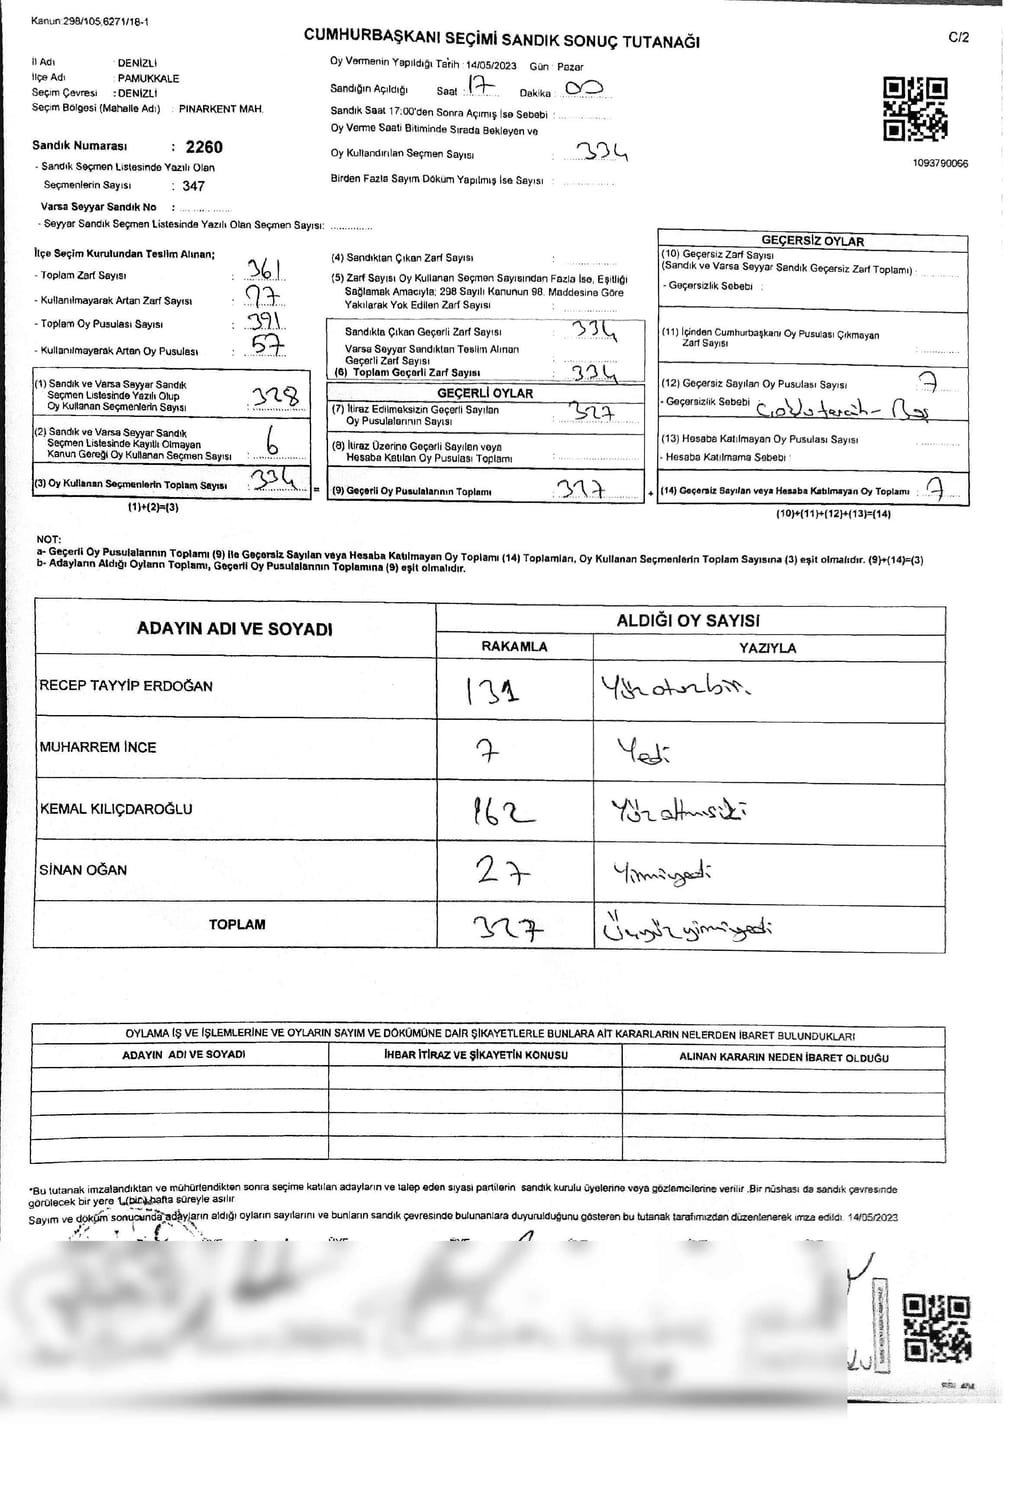 Kanun:298/105,6271/18-1
CUMHURBAŞKANI SEÇİMİ SANDIK SONUÇ TUTANAĞI
C/2
İl Adı : DENİZLİ
İlçe Adı : PAMUKKALE
Seçim Çevresi : DENİZLİ
Seçim Bölgesi (Mahalle Adı) : PINARKENT MAH.
Sandık Numarası : 2260
- Sandık Seçmen Listesinde Yazılı Olan
Seçmenlerin Sayısı : 347
Varsa Seyyar Sandık No :
- Seyyar Sandık Seçmen Listesinde Yazılı Olan Seçmen Sayısı:
Oy Vermenin Yapıldığı Tarih : 14/05/2023 Gün : Pazar
Sandığın Açıldığı Saat : 17 Dakika : 00
Sandık Saat 17:00'den Sonra Açımış İse Sebebi :
Oy Verme Saati Bitiminde Sırada Bekleyen ve
Oy Kullandırılan Seçmen Sayısı : 334
Birden Fazla Sayım Döküm Yapılmış İse Sayısı :
1093790066
İlçe Seçim Kurulundan Teslim Alınan;
- Toplam Zarf Sayısı : 361
- Kullanılmayarak Artan Zarf Sayısı :
- Toplam Oy Pusulası Sayısı : 391
- Kullanılmayarak Artan Oy Pusulası : 57
(1) Sandık ve Varsa Seyyar Sandık
Seçmen Listesinde Yazılı Olup
Oy Kullanan Seçmenlerin Sayısı : 328
(2) Sandık ve Varsa Seyyar Sandık
Seçmen Listesinde Kayıtlı Olmayan
Kanun Gereği Oy Kullanan Seçmen Sayısı : 6
(3) Oy Kullanan Seçmenlerin Toplam Sayısı : 334 =
(1)+(2)=(3)
(4) Sandıktan Çıkan Zarf Sayısı :
(5) Zarf Sayısı Oy Kullanan Seçmen Sayısından Fazla İse, Eşitliği
Sağlamak Amacıyla; 298 Sayılı Kanunun 98. Maddesine Göre
Yakılarak Yok Edilen Zarf Sayısı :
Sandıkta Çıkan Geçerli Zarf Sayısı : 334
Varsa Seyyar Sandıktan Teslim Alınan
Geçerli Zarf Sayısı :
(6) Toplam Geçerli Zarf Sayısı : 334
GEÇERLİ OYLAR
(7) İtiraz Edilmeksizin Geçerli Sayılan : 327
Oy Pusulalarının Sayısı
(8) İtiraz Üzerine Geçerli Sayılan veya
Hesaba Katılan Oy Pusulası Toplamı :
(9) Geçerli Oy Pusulalarının Toplamı : 327 +
GEÇERSİZ OYLAR
(10) Geçersiz Zarf Sayısı
(Sandık ve Varsa Seyyar Sandık Geçersiz Zarf Toplamı) :
- Geçersizlik Sebebi :
(11) İçinden Cumhurbaşkanı Oy Pusulası Çıkmayan
Zarf Sayısı :
(12) Geçersiz Sayılan Oy Pusulası Sayısı : 7
- Geçersizlik Sebebi : Çoklu tercih - Boş
(13) Hesaba Katılmayan Oy Pusulası Sayısı :
- Hesaba Katılmama Sebebi :
(14) Geçersiz Sayılan veya Hesaba Katılmayan Oy Toplamı : 7
(10)+(11)+(12)+(13)=(14)
NOT:
a- Geçerli Oy Pusulalarının Toplamı (9) ile Geçersiz Sayılan veya Hesaba Katılmayan Oy Toplamı (14) Toplamları, Oy Kullanan Seçmenlerin Toplam Sayısına (3) eşit olmalıdır. (9)+(14)=(3)
b- Adayların Aldığı Oyların Toplamı, Geçerli Oy Pusulalarının Toplamına (9) eşit olmalıdır.
ADAYIN ADI VE SOYADI
ALDIĞI OY SAYISI
RAKAMLA YAZIYLA
RECEP TAYYİP ERDOĞAN 131 Yüzotuzbir.
MUHARREM İNCE 7 Yedi
KEMAL KILIÇDAROĞLU 162 Yüzaltmışiki
SİNAN OĞAN 27 Yirmiyedi
TOPLAM 327 Üçyüzyirmiyedi
OYLAMA İŞ VE İŞLEMLERİNE VE OYLARIN SAYIM VE DÖKÜMÜNE DAİR ŞİKAYETLERLE BUNLARA AİT KARARLARIN NELERDEN İBARET BULUNDUKLARI
ADAYIN ADI VE SOYADI İHBAR İTİRAZ VE ŞİKAYETİN KONUSU ALINAN KARARIN NEDEN İBARET OLDUĞU
*Bu tutanak imzalandıktan ve mühürlendikten sonra seçime katılan adayların ve talep eden siyasi partilerin sandık kurulu üyelerine veya gözlemcilerine verilir .Bir nüshası da sandık çevresinde
görülecek bir yere 1 (bir) hafta süreyle asılır
Sayım ve döküm sonucunda adayların aldığı oyların sayılarını ve bunların sandık çevresinde bulunanlara duyurulduğunu gösteren bu tutanak tarafımızdan düzenlenerek imza edildi. 14/05/2023